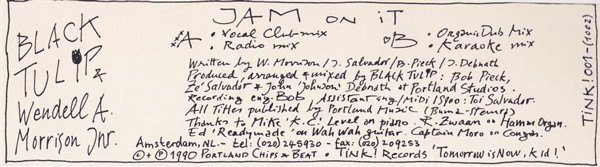 BLACK
TULIP
&
Wendell A.
Morrison Jnr.
JAM ON iT
A • Vocal Club mix
• Radio mix
B • Organic Dub Mix
• Karaoke mix
Written by W. Morrison / J. Salvador / B. Pieck / J. Debnath
Produced, arranged & mixed by BLACK TULIP: Bob Pieck,
Zé Salvador & John 'Johnson' Debnath at Portland Studios.
Recording eng. Bob / Assistant eng / MIDI / SP00: Toi Salvador.
All Titles published by Portland Music (Buma-stemra)
Thanks to Mike 'K.C.' Level on piano. R. Zwaan on Hammond Organ.
Ed 'Readymade' on Wah Wah guitar. Captain Moro on Congas.
Amsterdam, NL. - tel: (020) 245930 - fax: (020) 209253
© + ℗ 1990 PORTLAND CHIPS & BEAT • TINK! Records 'Tomorrow is Now, kid!'
TINK! 001 - (1002)